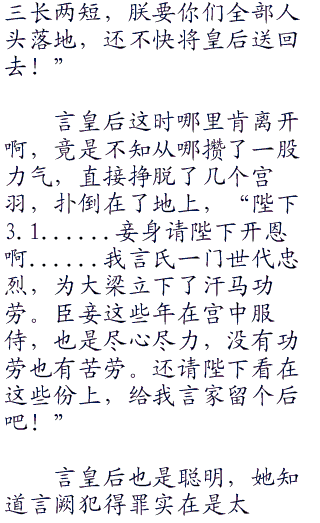 三长两短，朕要你们全部人
头落地，还不快将皇后送回
去！”
言皇后这时哪里肯离开
啊，竟是不知从哪攒了一股
力气，直接挣脱了几个宫
羽，扑倒在了地上，“陛下
3.1......妾身请陛下开恩
啊......我言氏一门世代忠
烈，为大梁立下了汗马功
劳。臣妾这些年在宫中服
侍，也是尽心尽力，没有功
劳也有苦劳。还请陛下看在
这些份上，给我言家留个后
吧！”
言皇后也是聪明，她知
道言阙犯得罪实在是太